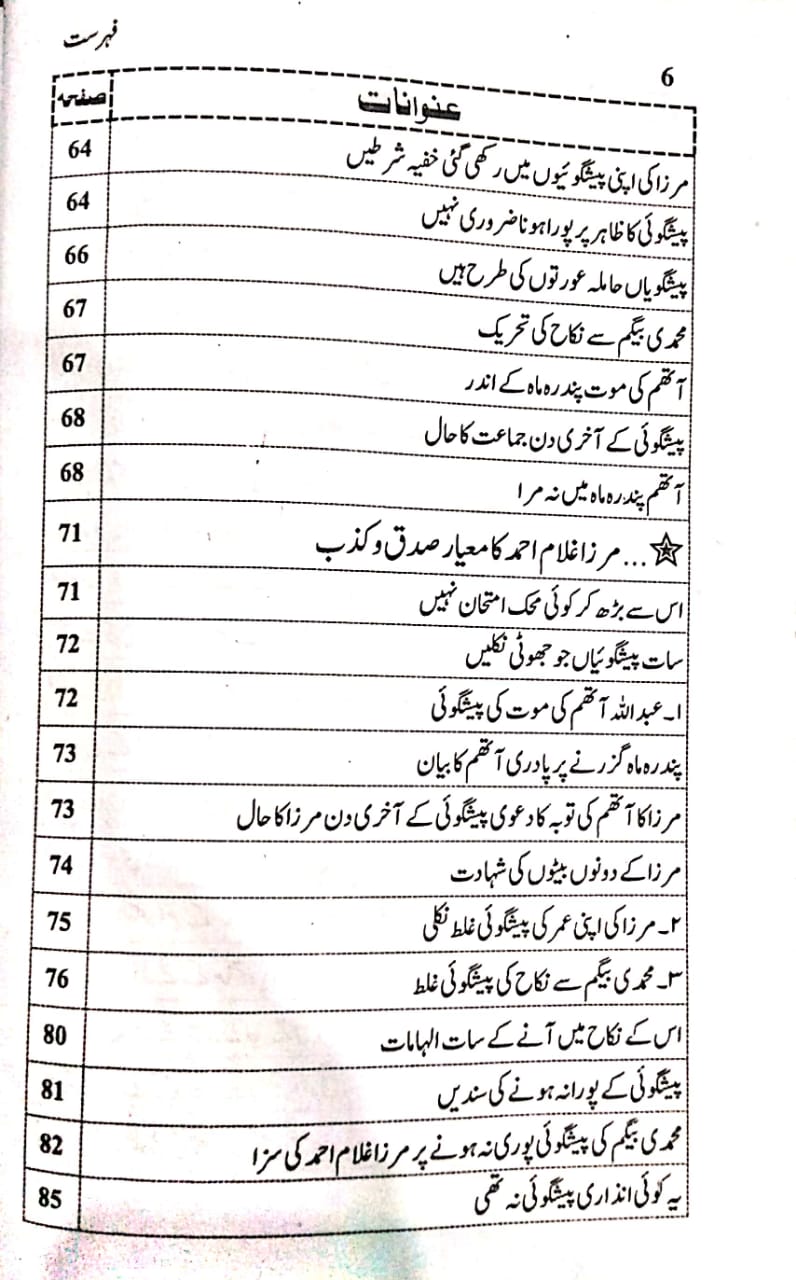 فہرست
6
عنوانات صفحہ
مرزا کی اپنی پیشگوئیوں میں رکھی گئی خفیہ شرطیں 64
پیشگوئی کا ظاہر پر پورا ہونا ضروری نہیں 64
پیشگویاں حاملہ عورتوں کی طرح ہیں 66
محمدی بیگم سے نکاح کی تحریک 67
آتھم کی موت پندرہ ماہ کے اندر 67
پیشگوئی کے آخری دن جماعت کا حال 68
آتھم پندرہ ماہ میں نہ مرا 68
☆... مرزا غلام احمد کا معیار صدق و کذب 71
اس سے بڑھ کر کوئی محک امتحان نہیں 71
سات پیشگوئیاں جو جھوٹی نکلیں 72
۱۔ عبداللہ آتھم کی موت کی پیشگوئی 72
پندرہ ماہ گزرنے پر پادری آتھم کا بیان 73
مرزا کا آتھم کی توبہ کا دعوی پیشگوئی کے آخری دن مرزا کا حال 73
مرزا کے دونوں بیٹوں کی شہادت 74
۲۔ مرزا کی اپنی عمر کی پیشگوئی غلط نکلی 75
۳۔ محمدی بیگم سے نکاح کی پیشگوئی غلط 76
اس کے نکاح میں آنے کے سات الہامات 80
پیشگوئی کے پورا نہ ہونے کی سندیں 81
محمدی بیگم کی پیشگوئی پوری نہ ہونے پر مرزا غلام احمد کی سزا 82
یہ کوئی انذاری پیشگوئی نہ تھی 85